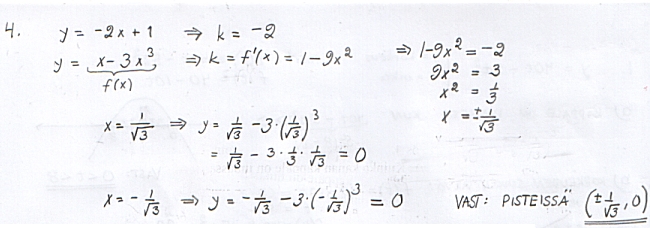 4. y = -2x + 1 ⇒ k = -2
y = x - 3x³ ⇒ k = f'(x) = 1 - 9x² ⇒ 1 - 9x² = -2
f(x)
9x² = 3
x² = 1/3
x = ± 1/√3
x = 1/√3 ⇒ y = 1/√3 - 3·(1/√3)³
= 1/√3 - 3 · 1/3 · 1/√3 = 0
x = - 1/√3 ⇒ y = - 1/√3 - 3·(- 1/√3)³ = 0 VAST: PISTEISSÄ (± 1/√3, 0)